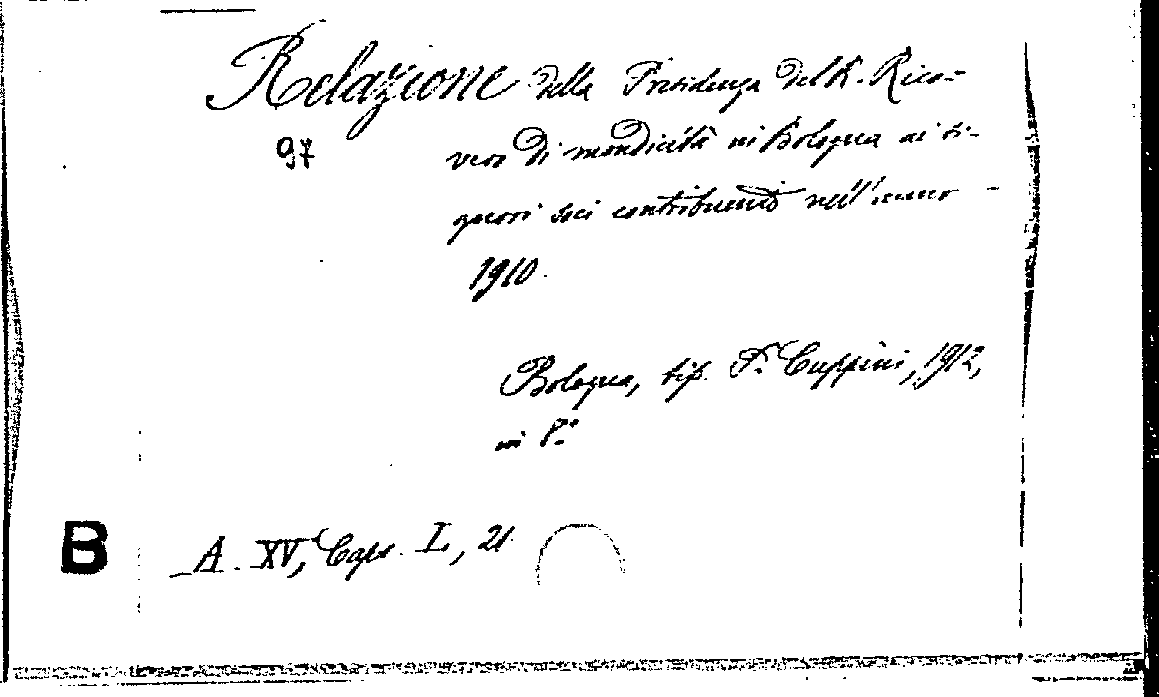 Relazione della Presidenza del R. Rico=
97
vero di mendicità in Bologna ai si-
gnori soci contribuenti nell'anno -
1910.
Bologna, tip. F. Cuppini, 1912,
in 8.°
B
A. XV, Caps. L, 21